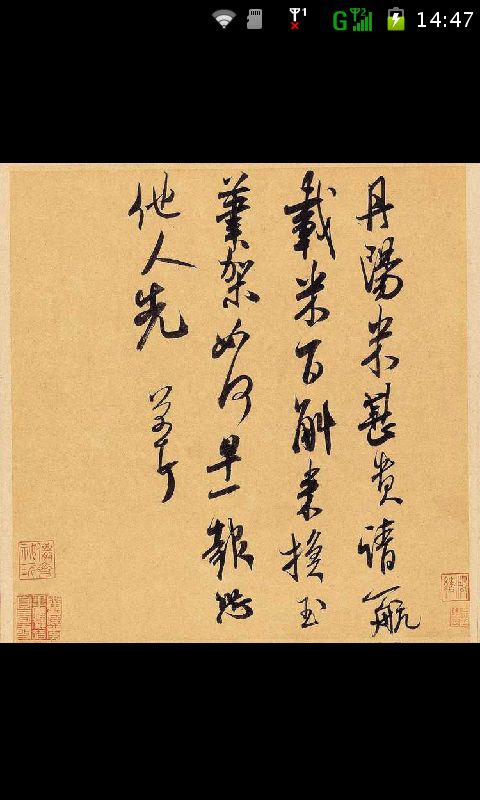 G 14:47
丹陽米甚貴請一航
載米百斛来換玉
筆架如何早一報恐
他人先 芾